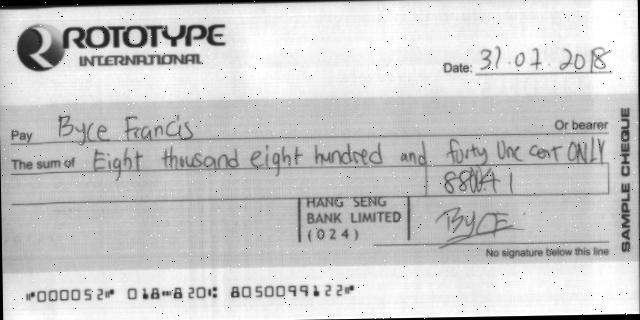 ROTOTYPE
INTERNATIONAL
Date: 31.07.2018
Pay Byce Francis Or bearer
The sum of Eight thousand eight hundred and forty One cent ONLY
88041
HANG SENG
BANK LIMITED
(024)
BYCE
No signature below this line
SAMPLE CHEQUE
⑈000052⑈ 018⑉820⑆ 8050099122⑈